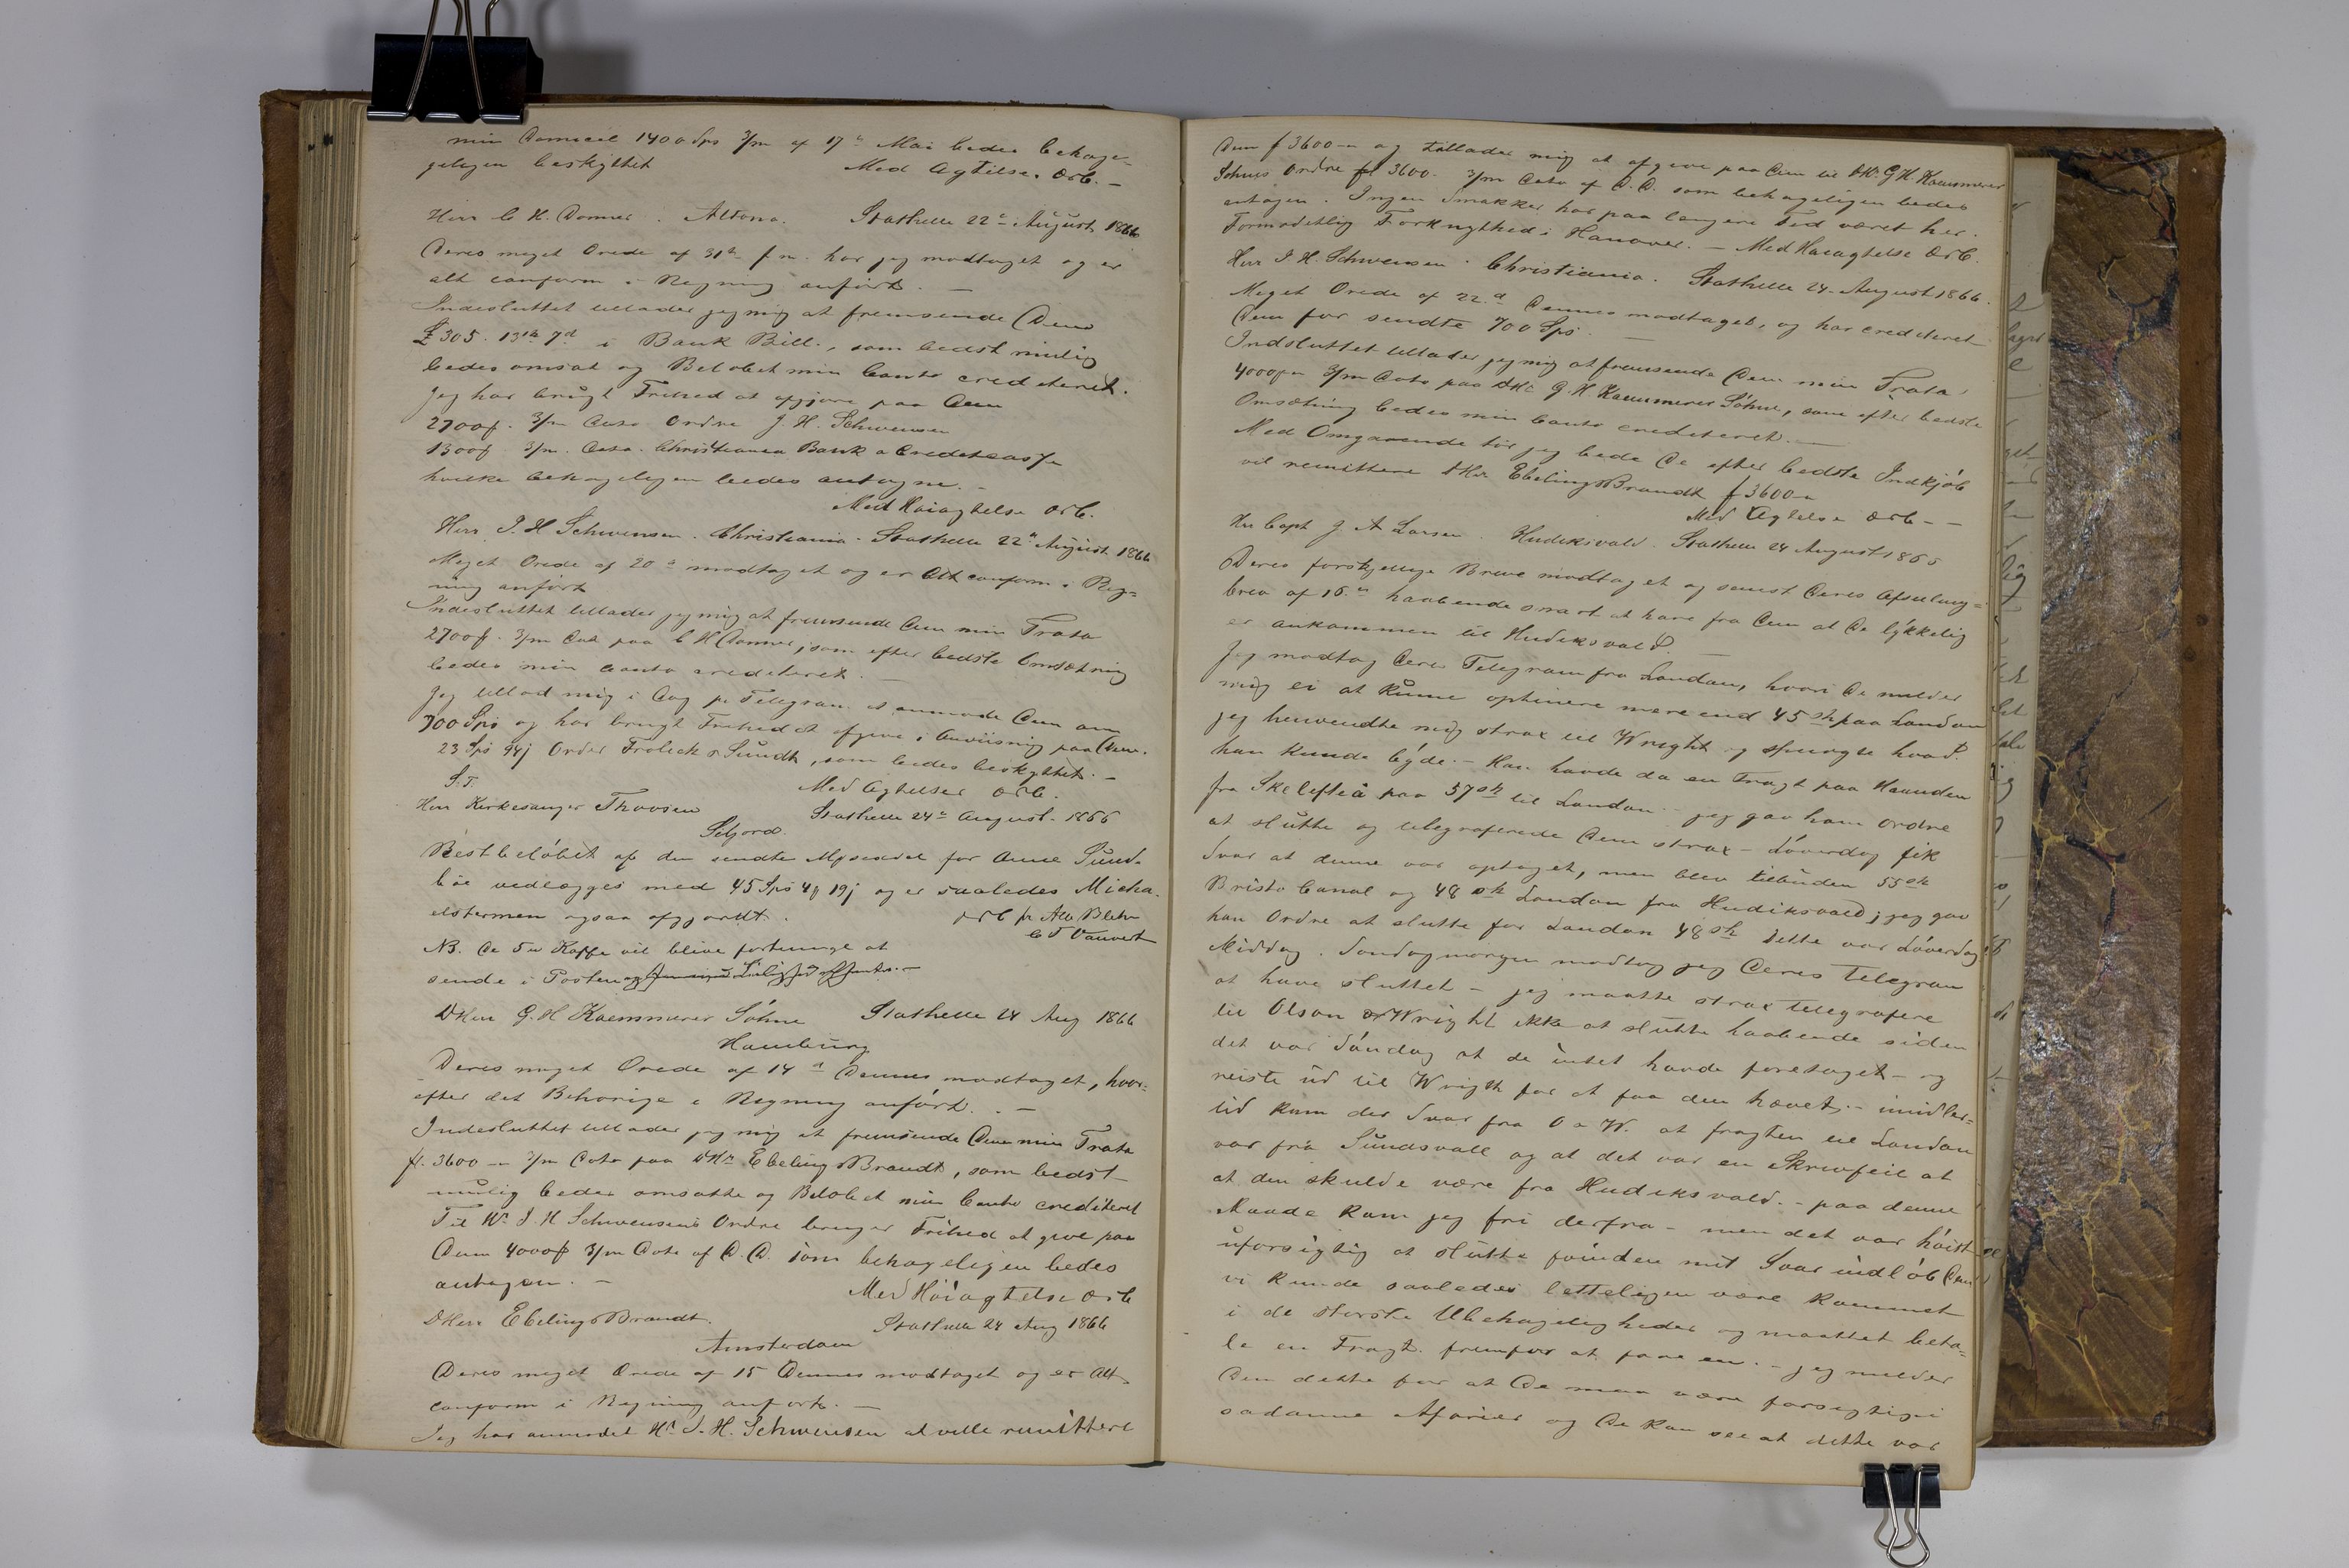 min Domicil 1400 Sps 3/m af 17de Mai bedes behage-
geligen beskyttet Med Agtelse. ærb. -
Herr C. H. Donner. Altona. Stathelle 22de August 1866
Deres meget Ærede af 31te f. m. har jeg modtaget og er
alt conform i Regning anført. -
Indesluttet tillader jeg mig at fremsende Dem
£ 305. 13sh 7d i Bank Bill., som bedst mulig
bedes omsat og Beløbet min Conto crediteret.
Jeg har brugt Frihed at afgive paa Dem
2700ƒ. 3/m Dato Ordre J. H. Schwensen
1300ƒ 3/m. Dato. Christiania Bank o Creditcasse
hvilke behageligen bedes antagne. -
Med Høiagtelse ærb.
Herr. J. H Schwensen. Christiania. Stathelle 22de August 1866
Meget Ærede af 20de modtaget og er Alt conform i Reg=
ning anført
Indesluttet tillader jeg mig at fremsende Dem min Trata
2700ƒ. 3/m Dato paa C H Donner, som efter bedste Omsætning
bedes min Conto crediteret. -
Jeg tillod mig i Dag pr Telegram at anmode Dem om
700 Sps og har brugt Frihed at afgive i Anviisning paa Dem.
23 Sps 94ʃ Ordre Frølich & Sundt, som bedes beskyttet. -
S. T. Med Agtelse ærb.
Herr Kirkesanger Thovsen Stathelle 24de August. 1866
Seljord.
Restbeløbet af den sendte for Anne Sund-
bøe vedlægges med 45 Sps 4 19ʃ og er saaledes Micha-
elstermen ogsaa afgjordt. ærb pr Alb Blehr
NB. De 5 Kaffe vil blive fortunge at
sende i Posten og
DHerr G. H Kaemmerer Söhne Stathelle 24 Aug 1866
Hamburg
Deres meget Ærede af 14de Dennes modtaget, hvor-
efter det Behørige i Regning anført. -
Indesluttet tillader jeg mig at fremsende Dem min Trata
fl. 3600 - 3/m Dato paa DHr Ebeling & Brandt, som bedst
mulig bedes omsatte og Beløbet min Conto crediteret
Til Hr J. H Schwensens Ordre bruger Frihed at give paa
Dem 4000ƒ 3/m Dato af D. D. som behageligen bedes
antagen. - Med Høiagtelse ærb
DHerr Ebeling & Brandt. Stathelle 24 Aug 1866
Amsterdam
Deres meget Ærede af 15 Dennes modtaget og er Alt
conform i Regning anført. -
Jeg har anmodet Hr J. H. Schwensen at ville remittere
Dem ƒ 3600 - og tillader mig at afgive paa Dem til DHr. G H. Kaemmerer
Söhnes Ordre fl 3600. 3/m Dato af D. D. som behageligen bedes
antagen. Ingen Smakker har paa længere Tid været her.
Formodetlig Forknythed i Hanover. - Med Høiagtelse ærb.
Herr J H. Schwensen. Christiania. Stathelle 24. August 1866.
Meget Ærede af 22d Dennes modtaget, og har crediteret
Dem for sendte 700 Sps. -
Indsluttet tillader jeg mig at fremsende Dem min Trata
4000 3/m Dato paa DHr G. H Kaemmerer Söhne, som efter bedste
Omsætning bedes min Conto crediteret. -
Med Omgaaende tør jeg bede De efter bedste Indkjøb
vil remittere DHrr Ebeling & Brandt ƒ 3600 -
Med Agtelse ærb - -
Hr Capt J A Larsen. Hudiksvald. Stathelle 24 August 1866
Deres forskjellige Breve modtaget og senest Deres Afseilings=
brev af 16. haabende snart at høre fra Dem at De lykkelig
er ankommen til Hudiksvald. -
Jeg modtog Deres Telegram fra London, hvori De melder
mig ei at kunne optinere mere end 45 sh paa London
jeg henvendte mig strax til Wright og spurgte hvad
han kunde byde. - Han havde da en Fragt paa Haanden
fra Skelefteå paa 57sh til London - jeg gav ham Ordre
at slutte og telegraferede Dem strax - Løverdag fik
Svar at denne var optaget, men blev tilbuden 55sh
Bristo Canal og 48 sh London fra Hudiksvald; jeg gav
han Ordre at slutte for London 48sh dette var Løverdag
Middag. Søndagmorgen modtog jeg Deres Telegram
at have sluttet - jeg maatte strax telegrafere
til Olson & Wright ikke at slutte haabende siden
det var Søndag at de intet havde foretaget - og
reiste ud til Wrigth for at faa den hævet, - imidler-
tid kom der Svar fra O & W. at fragten til London
var fra Sundsvall og at det var en Skrivfeil at
at den skulde være fra Hudiksvald. - paa denne
Maade kom jeg fri derfra - men det var høist
uforsigtig at slutte førinden mit Svar indløb Dem
vi kunde saaledes letteligen være kommet
i de største Ubehageligheder og maattet beta-
le en Fragt. fremfor at fare en. - jeg melder
Dem dette for at De maa være forsigtig i
sadanne Afairer og De kan see at dette var